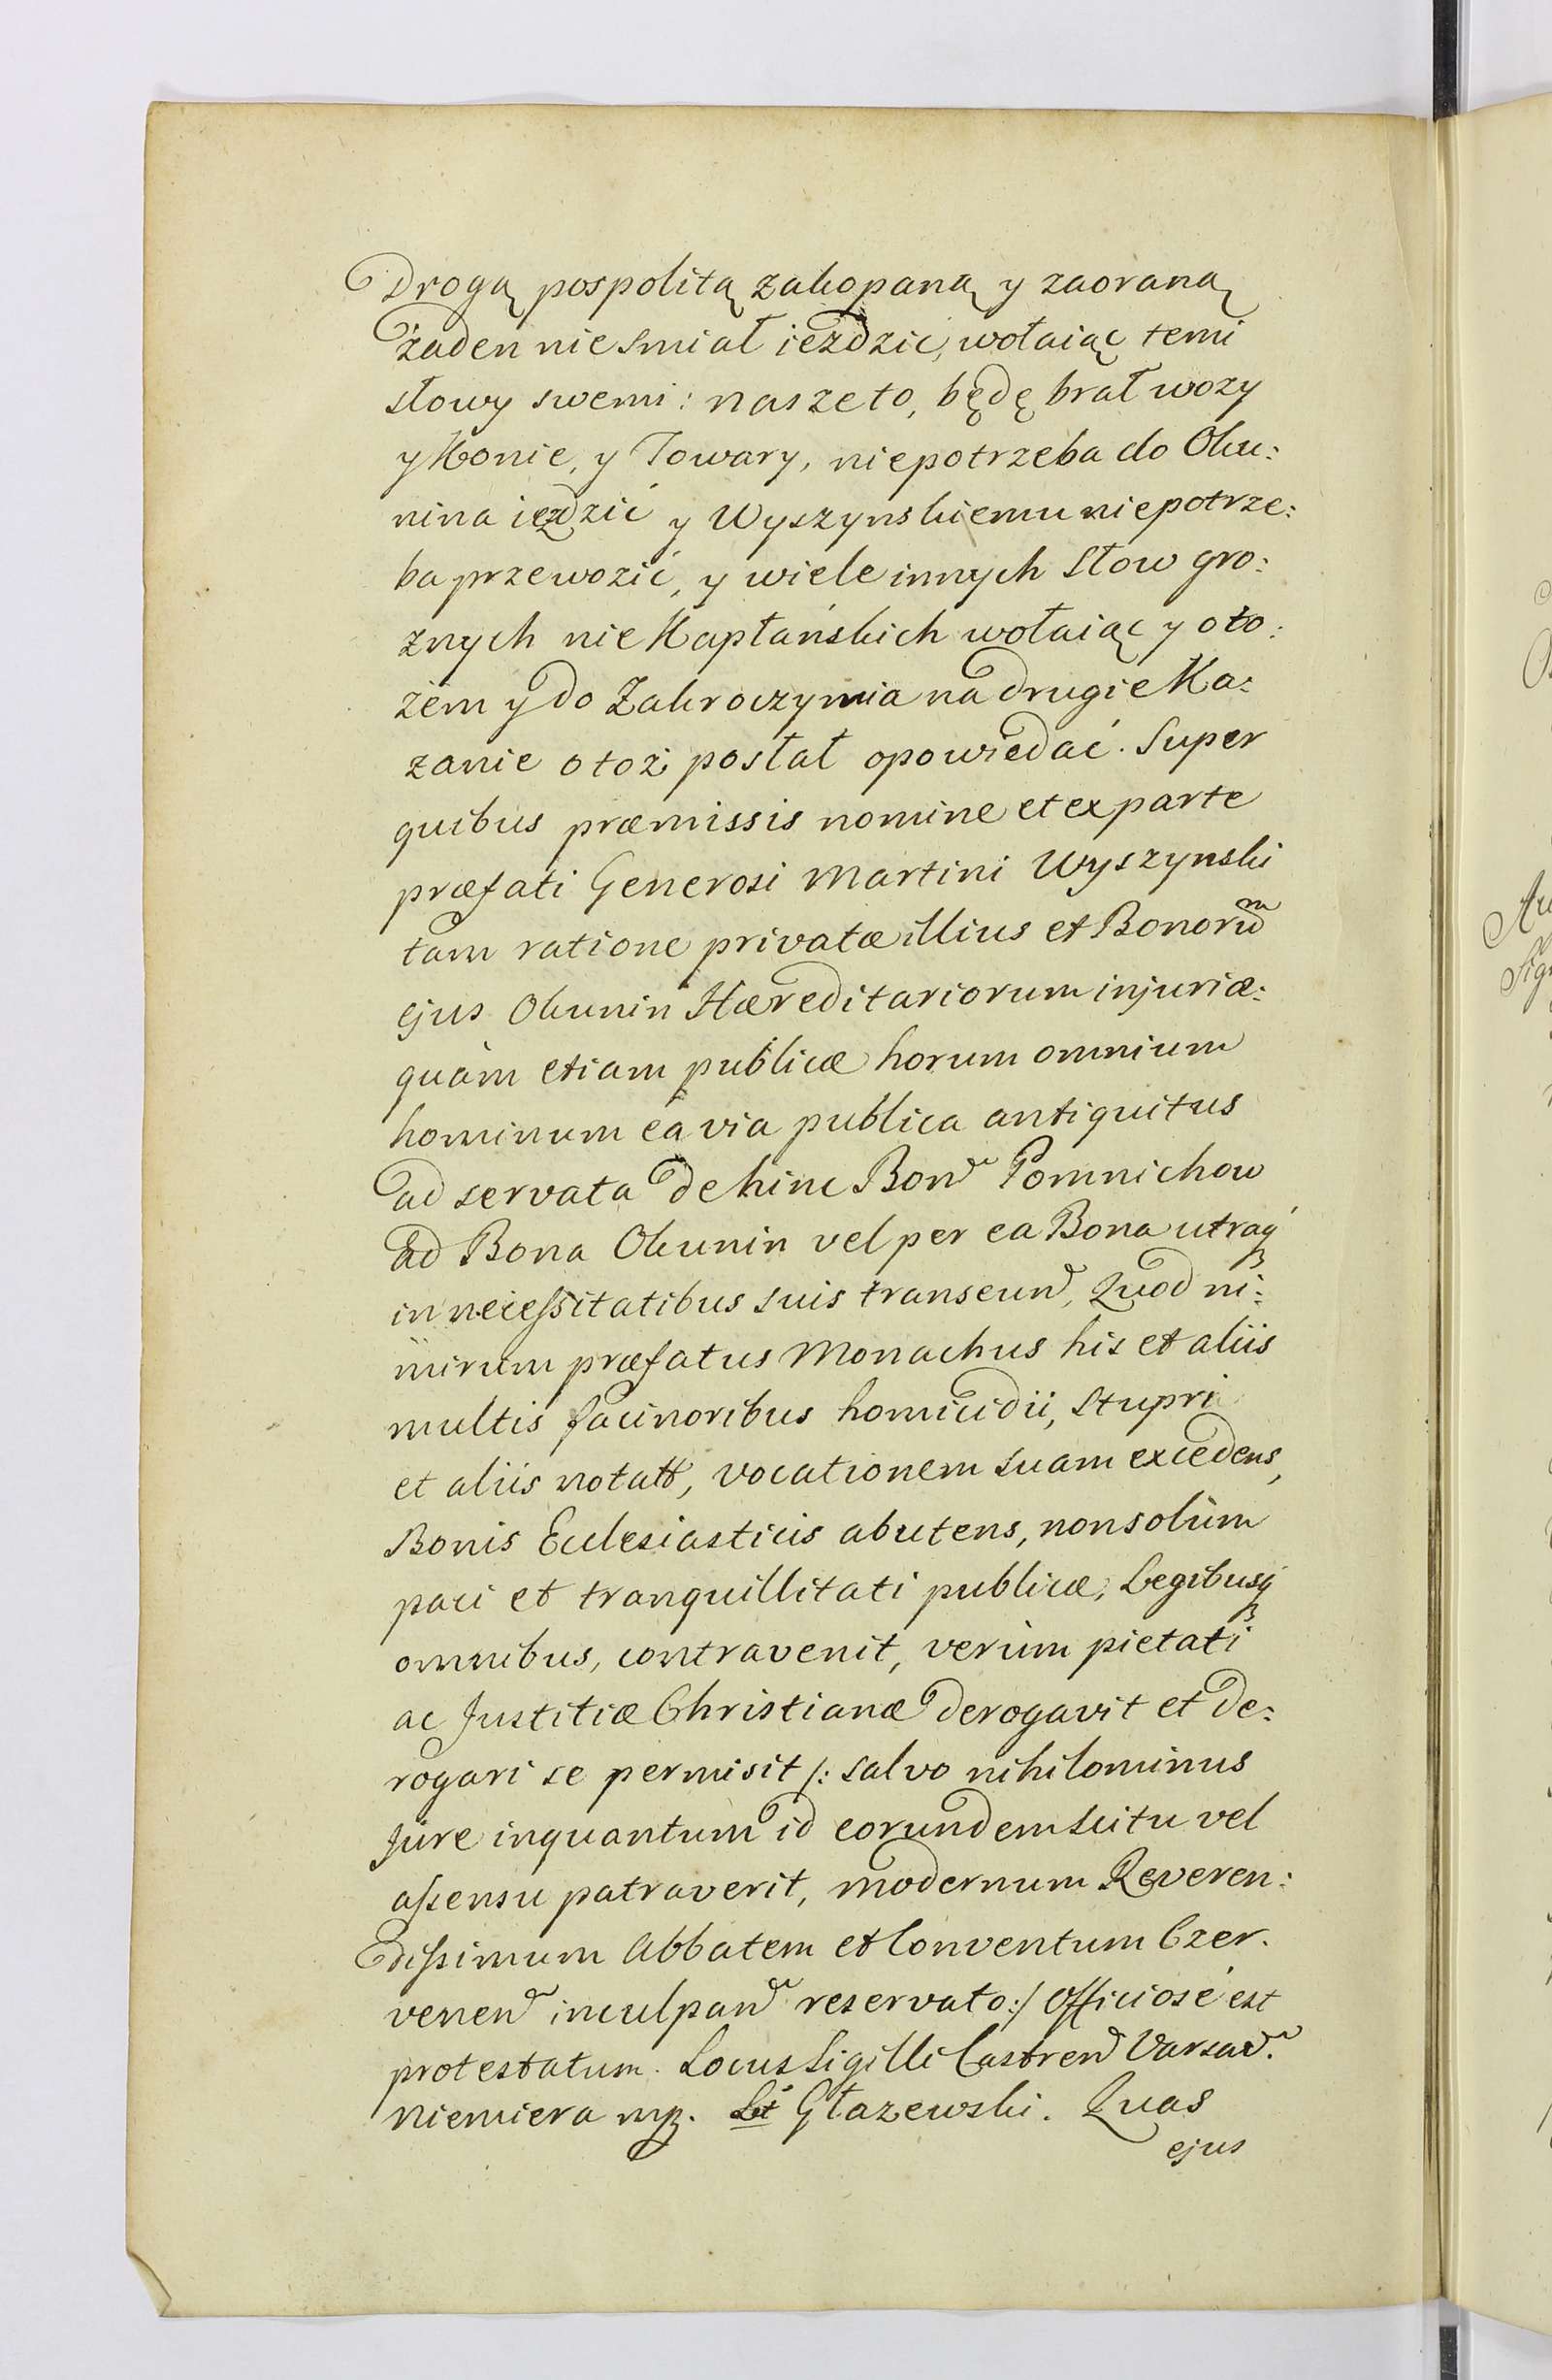 Drogą pospolitą zakopaną y zaoraną
żaden nie smiał iezdzic, wołaiąc temi
słowy swemi: nasze to, będę brał wozy
y Konie, y Towary, niepotrzeba do Oku:
nina ięzdzić y Wyszynskiemu niepotrze:
ba przewozić, y wiele innych Słow gro:
znych nie Kapłańskich wołaiąc y oto:
żem y do Zakroczymia na drugie Ka:
zanie otoż posłał opowiedać. Super
quibus præmissis nomine et ex parte
præfati Generosi Martini Wyszynski
tam ratione privatæ illius et Bonorum
ejus Okunin Hæreditariorum injuriæ:
quàm etiam publicæ horum omnium
hominum ea via publica antiquitus
ad servata de hinc Bond Pomnichow
ad Bona Okunin vel per ea Bona utraq3
in necessitatibus suis transeund, Quod ni:
mirum præfatus Monachus his et aliis
multis facinoribus homicidii, stupri
et aliis notatt, vocationem suam excedens,
Bonis Ecclesiasticis abutens, non solùm
paci et tranquillitati publicæ, Legibusq3
omnibus, contravenit, verùm pietati
ac Justitiæ Christianæ derogavit et de:
rogari se permisit /: salvo nihilominus
jure inquantum id eorundem scitu vel
assensu patraverit, modernum Reveren:
dissimum Abbatem et Conventum Czer.
venen inculpand reservato:/ Officiosè est
protestatum. Locus Sigilli Castren Varsav.
Niemiera mp. Lt Głazewski. Quas
ejus